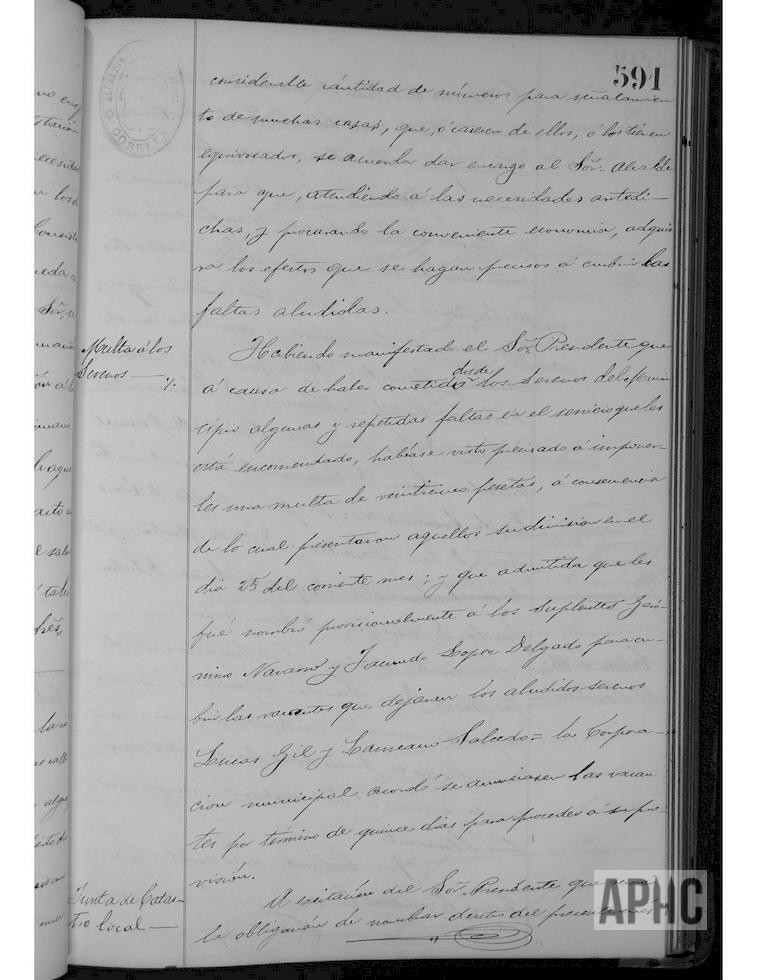 591
considerable cántidad de números para señalamien
to de muchas casas, que, ó carecen de ellos, ó los tienen
equivocados, se acuerda dar encargo al Sor. Alcalde
para que, atendiendo á las necesidades antedi-
chas, y procurando la conveniente economia, adqui
ra los efectos que se hagan precisos á cubrir las
faltas aludidas.
Multa á los
Serenos
Habiendo manifestado el Sor. Presidente que
á causa de haber cometido dos de los Serenos del Muni
cipio algunas y repetidas faltas en el servicio que les
está encomendado, habíase visto precisado á imponer-
les una multa de veinticinco pesetas, á consecuencia
de lo cual presentaron aquellos su dimision en el
dia 25 del corriente mes; y que admitida que les
fué nombró provisionalmente á los suplentes Geró-
nimo Navarro y Facundo Lopez Delgado para cu-
brir las vacantes que dejaron los aludidos serenos
Lucas Gil y Laureano Salcedo= la Corpora-
cion municipal acordó se anunciasen las vacan
tes por término de quince dias para proceder á su pro-
visión.
Junta de Catas-
tro local
A exitación del Sor. Presidente que
la obligación de nombrar dentro del presente mes
ALCALDIA
APHC